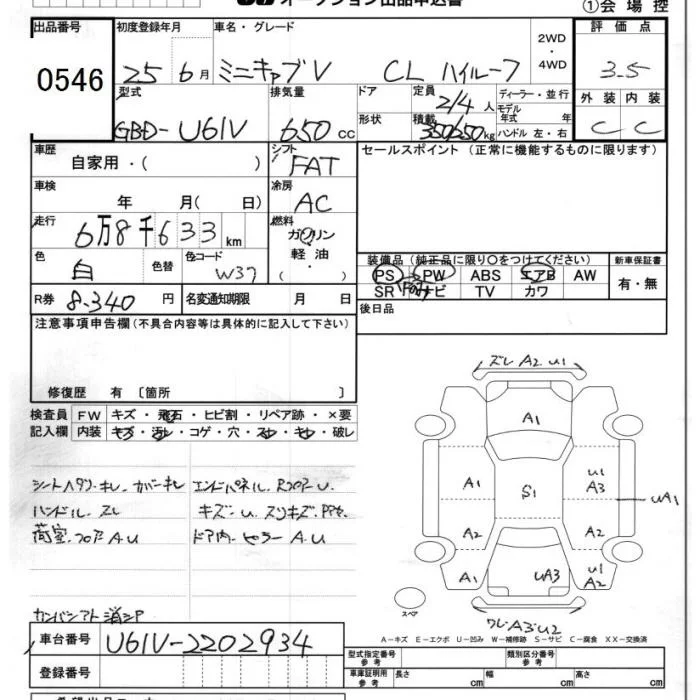 オークション出品申込書 ①会場控
出品番号 初度登録年月 車名・グレード 2WD・4WD 評価点
0546 25 6月 ミニキャブV CL ハイルーフ 3.5
型式 排気量 ドア 定員 2/4人 ディーラー・並行 外装 内装
モデル年式 年
GBD-U61V 650cc 形状 積載 350/250kg ハンドル 左・右 C C
車歴 シフト セールスポイント（正常に機能するものに限ります）
自家用・（ ） FAT
車検 冷房
年 月（ 日） AC
走行 燃料
6万8千633km ガソリン
色 色替 色コード 軽油・
白 W37 （ ） 装備品（純正品に限り○をつけてください） 新車保証書
PS PW ABS エアB AW 有・無
SR ナビ TV カワ
R券 8.340円 名変通知期限 月 日 後日品
注意事項申告欄（不具合内容等は具体的に記入して下さい）
修復歴 有〔箇所 〕
検査員 FW キズ・飛石・ヒビ割・リペア跡・×要
記入欄 内装 キズ・汚レ・コゲ・穴・スレ・キレ・破レ
ズレ A2 U1
A1
A1 S1 U1 A3 UA1
A2 A2
A1 UA3 U1 A2
スペア
ワレ A3 U2
シートヘタリ・キレ カバーキレ エンドパネル Rフロア U
ハンドル スレ キズ・U
荷室 フロア A U ドア内・ピラー A.U
カンバンアト 消シP
A－キズ E－エクボ U－凹み W－補修跡 S－サビ C－腐食 XX－交換済
車台番号 U61V-2202934
型式指定番号 参考 類別区分番号 参考
登録番号 車庫証明用 参考 長さ cm 幅 cm 高さ cm